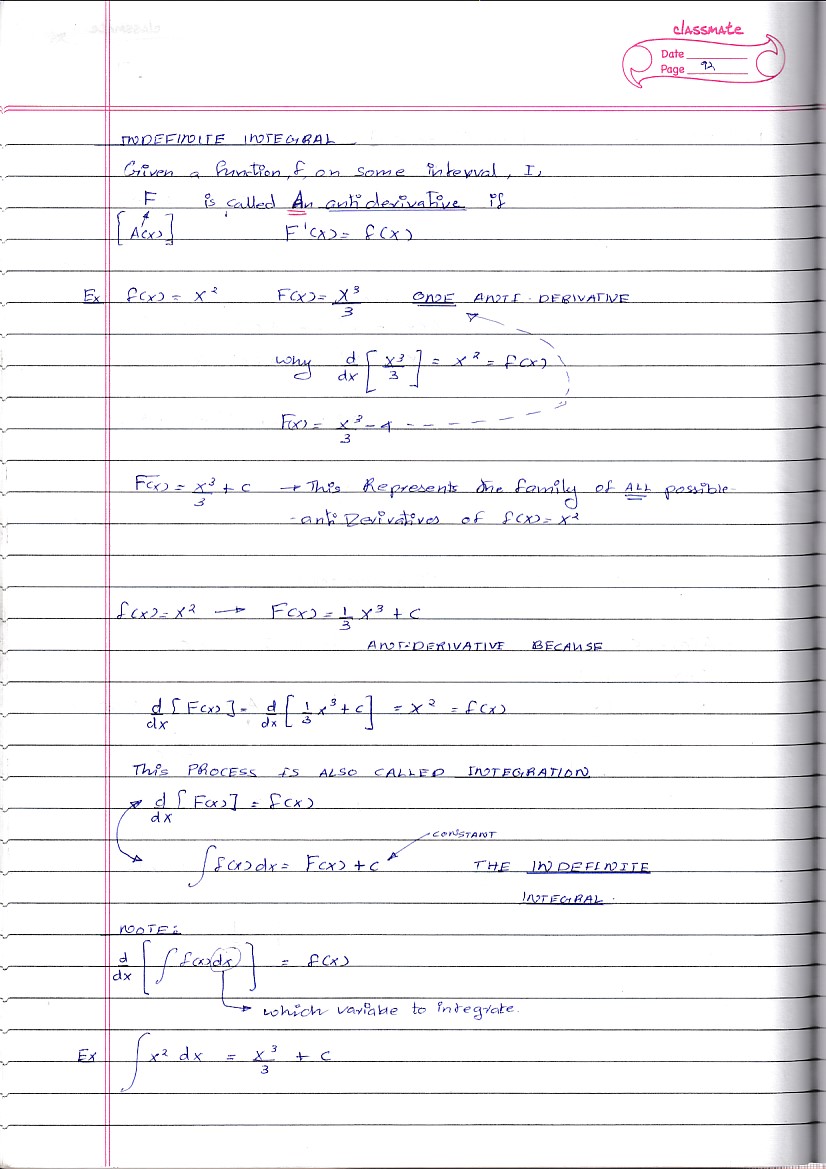 classmate
Date
Page 92
INDEFINITE INTEGRAL
Given a function, f, on some interval, I,
F is called An anti derivative if
[A(x)] F'(x) = f(x)
Ex f(x) = x² F(x) = x³/3 ONE ANTI-DERIVATIVE
why d/dx [x³/3] = x² = f(x)
F(x) = x³/3 - 4
F(x) = x³/3 + c → This Represents the family of ALL possible
anti Derivatives of f(x) = x²
f(x) = x² → F(x) = 1/3 x³ + c
ANTI-DERIVATIVE BECAUSE
d/dx [F(x)] = d/dx [1/3 x³ + c] = x² = f(x)
This PROCESS IS ALSO CALLED INTEGRATION
d/dx [F(x)] = f(x)
CONSTANT
∫ f(x) dx = F(x) + c THE INDEFINITE
INTEGRAL.
NOTE:
d/dx [∫ f(x) dx] = f(x)
which variable to integrate.
Ex ∫ x² dx = x³/3 + c